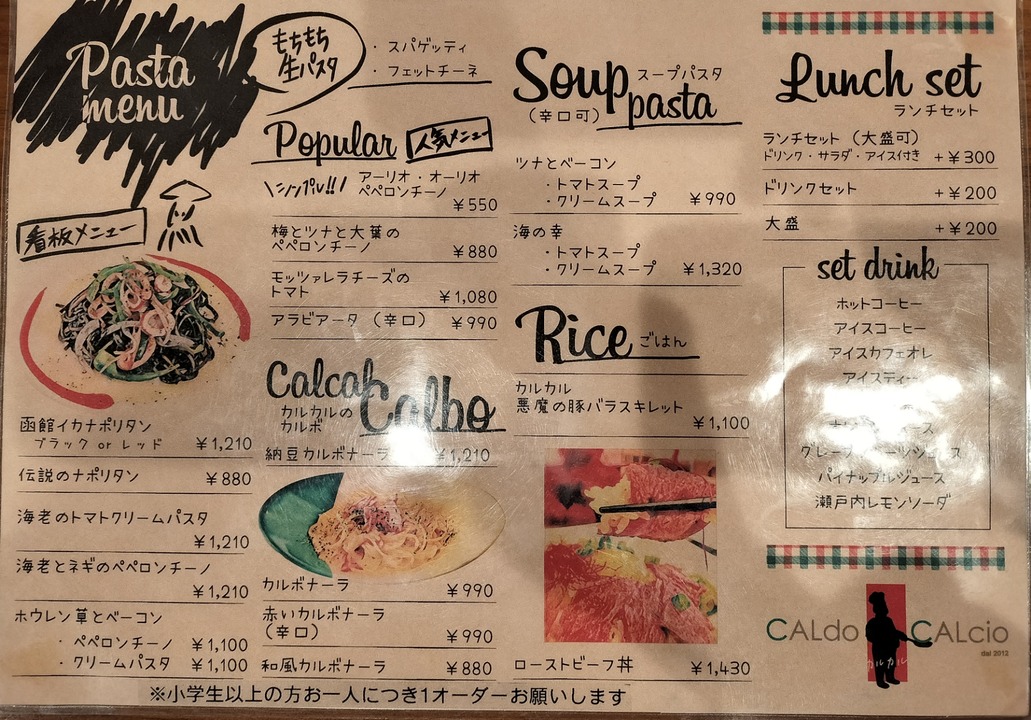 Pasta
menu
もちもち
生パスタ
・スパゲッティ
・フェットチーネ
看板メニュー
函館イカナポリタン
ブラック or レッド ¥1,210
伝説のナポリタン ¥880
海老のトマトクリームパスタ
¥1,210
海老とネギのペペロンチーノ
¥1,210
ホウレン草とベーコン
・ペペロンチーノ ¥1,100
・クリームパスタ ¥1,100
Popular 人気メニュー
\シンプル!!/ アーリオ・オーリオ
ペペロンチーノ
¥550
梅とツナと大葉の
ペペロンチーノ ¥880
モッツァレラチーズの
トマト ¥1,080
アラビアータ（辛口） ¥990
Calcal
Calbo
カルカルの
カルボ
納豆カルボナーラ ¥1,210
カルボナーラ ¥990
赤いカルボナーラ
（辛口） ¥990
和風カルボナーラ ¥880
Soup スープパスタ
pasta
（辛口可）
ツナとベーコン
・トマトスープ
・クリームスープ ¥990
海の幸
・トマトスープ
・クリームスープ ¥1,320
Rice ごはん
カルカル
悪魔の豚バラスキレット
¥1,100
ローストビーフ丼 ¥1,430
Lunch set
ランチセット
ランチセット（大盛可）
ドリンク・サラダ・アイス付き +¥300
ドリンクセット +¥200
大盛 +¥200
set drink
ホットコーヒー
アイスコーヒー
アイスカフェオレ
アイスティー
パイナップルジュース
瀬戸内レモンソーダ
CALdo CALcio
カルカル
dal 2012
※小学生以上の方お一人につき1オーダーお願いします